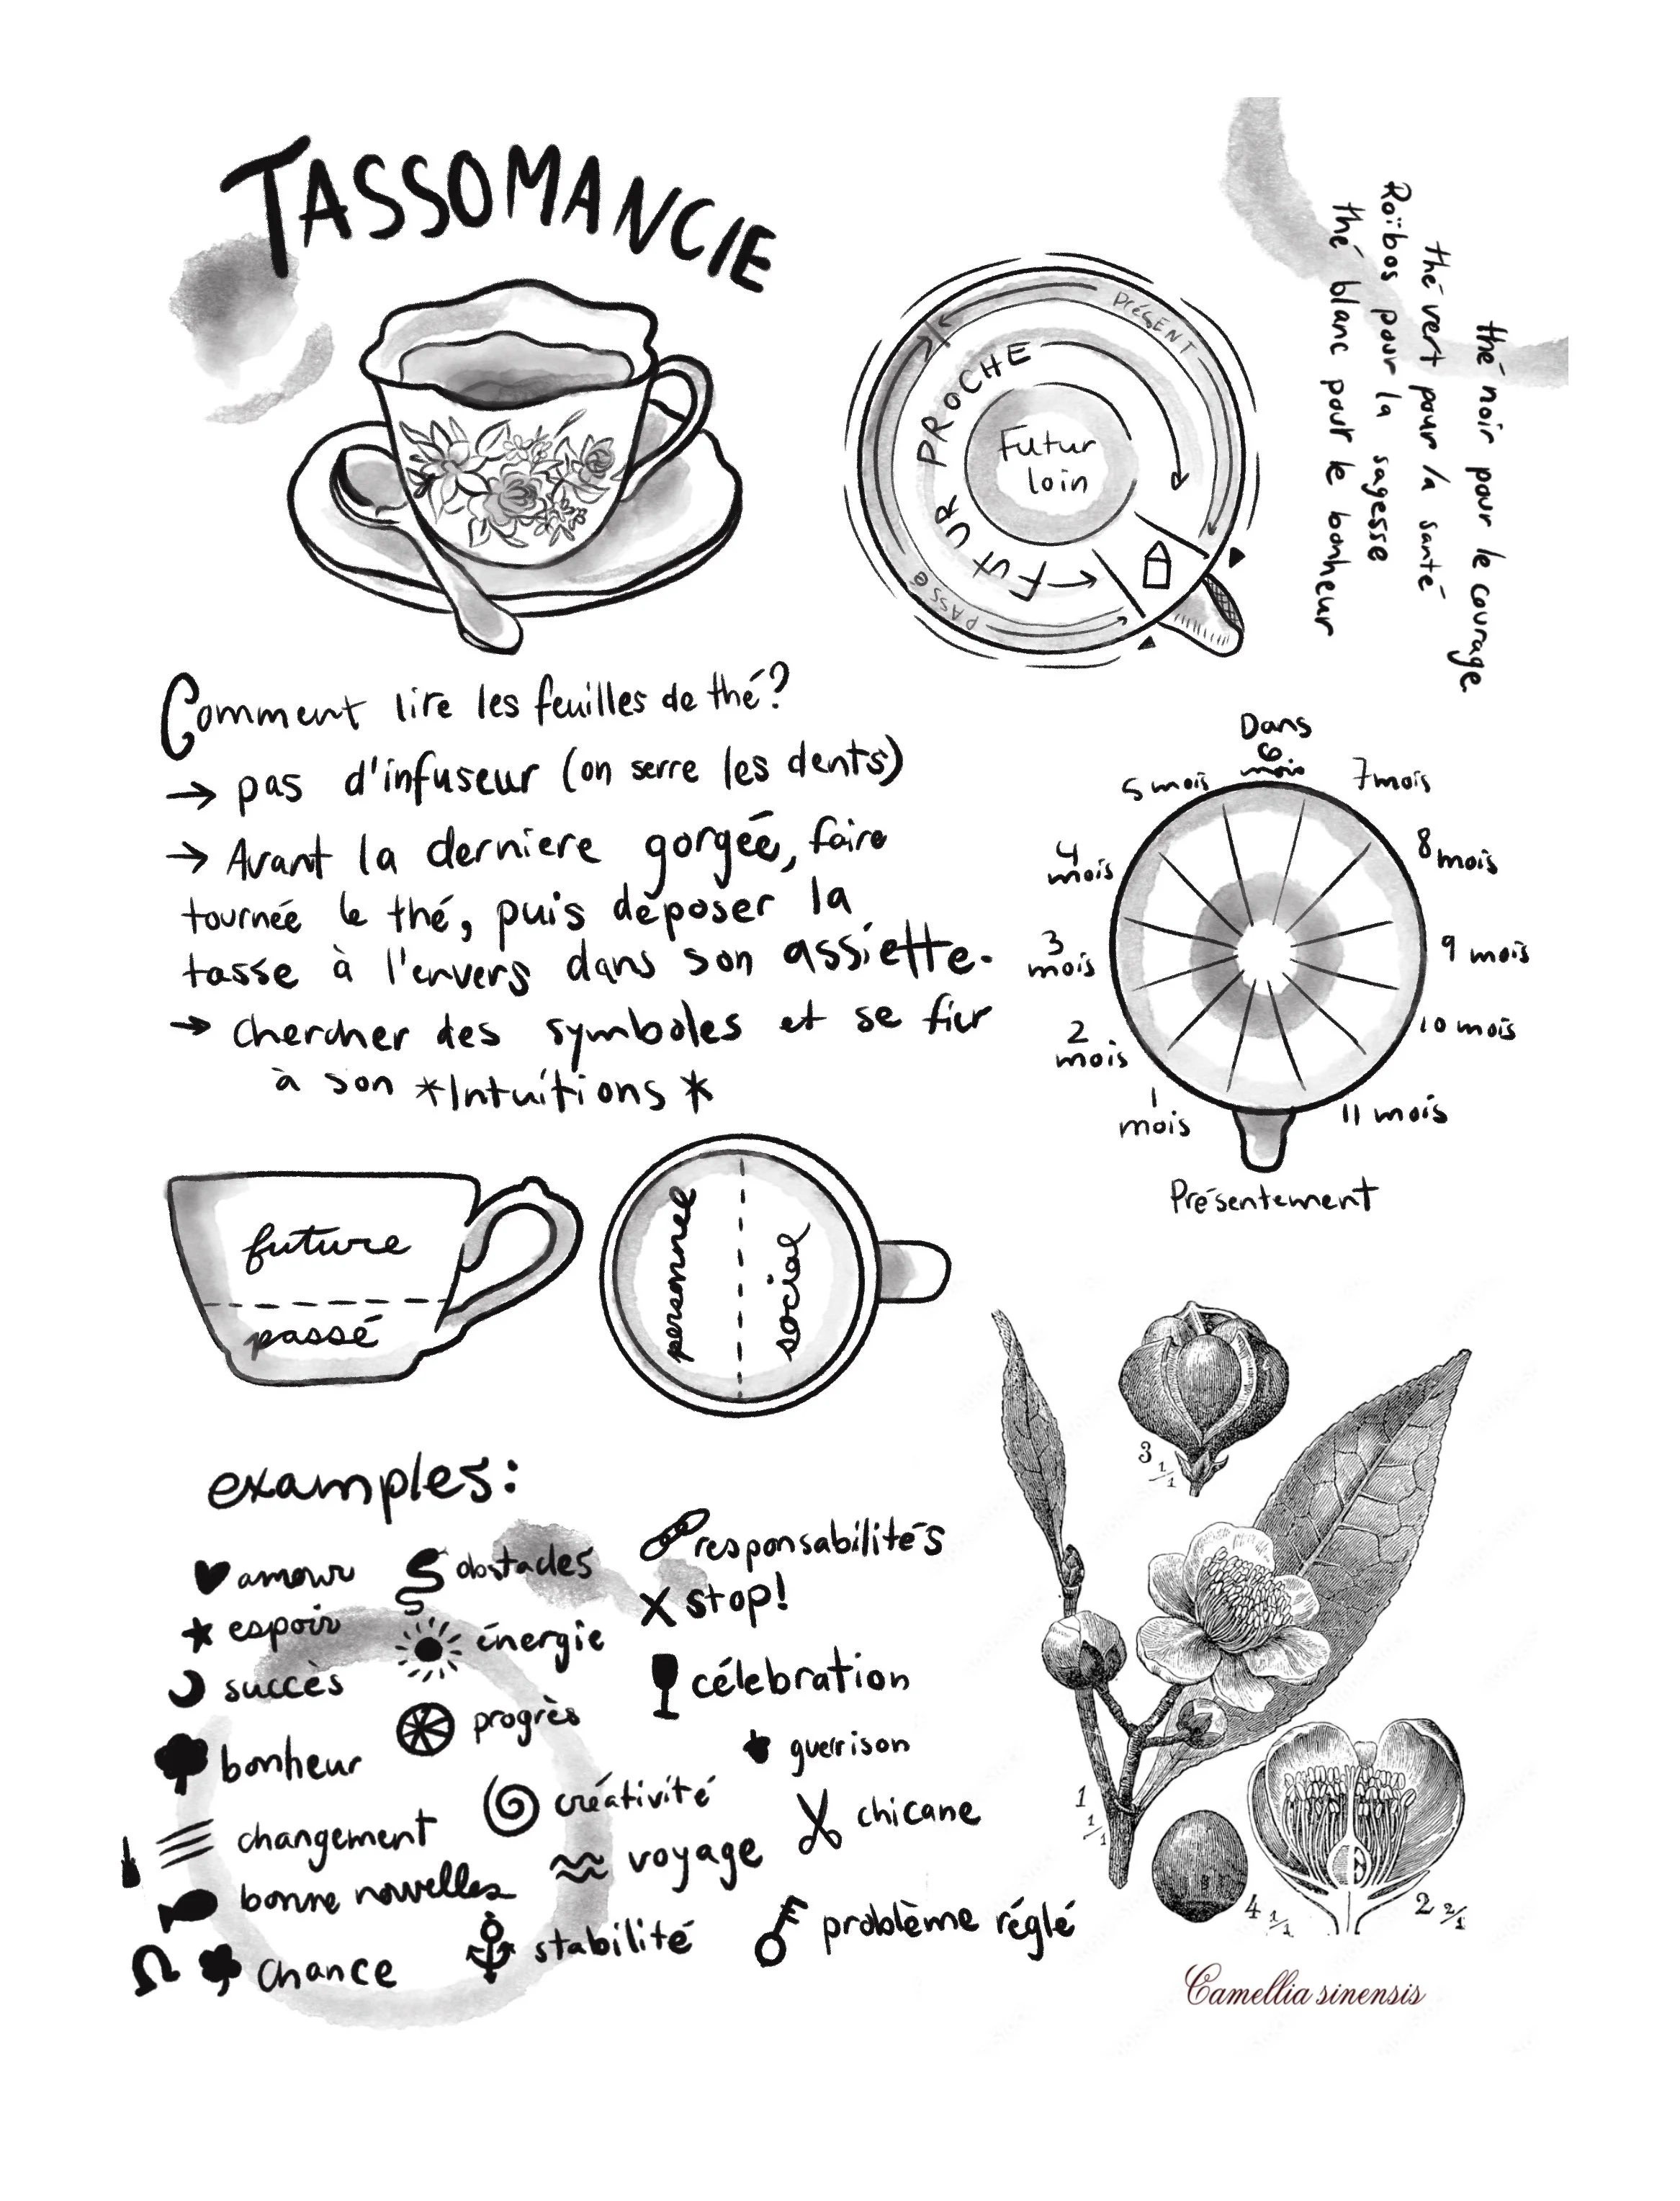 TASSOMANCIE
PRÉSENT
FUTUR PROCHE
Futur
loin
PASSÉ
thé noir pour le courage
thé vert pour la santé
Roïbos pour la sagesse
thé blanc pour le bonheur
Comment lire les feuilles de thé?
→ pas d'infuseur (on serre les dents)
→ Avant la derniere gorgée, faire
tournée le thé, puis déposer la
tasse à l'envers dans son assiette.
→ chercher des symboles et se fier
à son *Intuitions*
Dans
6
mois
5 mois
7 mois
4
mois
8 mois
3
mois
9 mois
2
mois
10 mois
1
mois
11 mois
Présentement
future
passé
personnee
social
examples:
amour
espoir
succès
bonheur
changement
bonne nouvelles
chance
obstacles
énergie
progrès
créativité
voyage
stabilité
responsabilités
X stop!
célebration
guerrison
chicane
problème réglé
3 1/1
1 1/1
4 1/1
2 2/1
Camellia sinensis